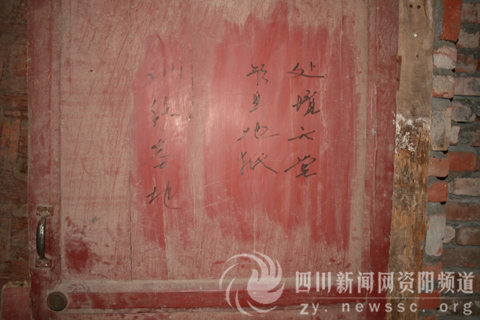 处境天堂
地狱
训练基地
四川新闻网资阳频道
zy.newssc.org